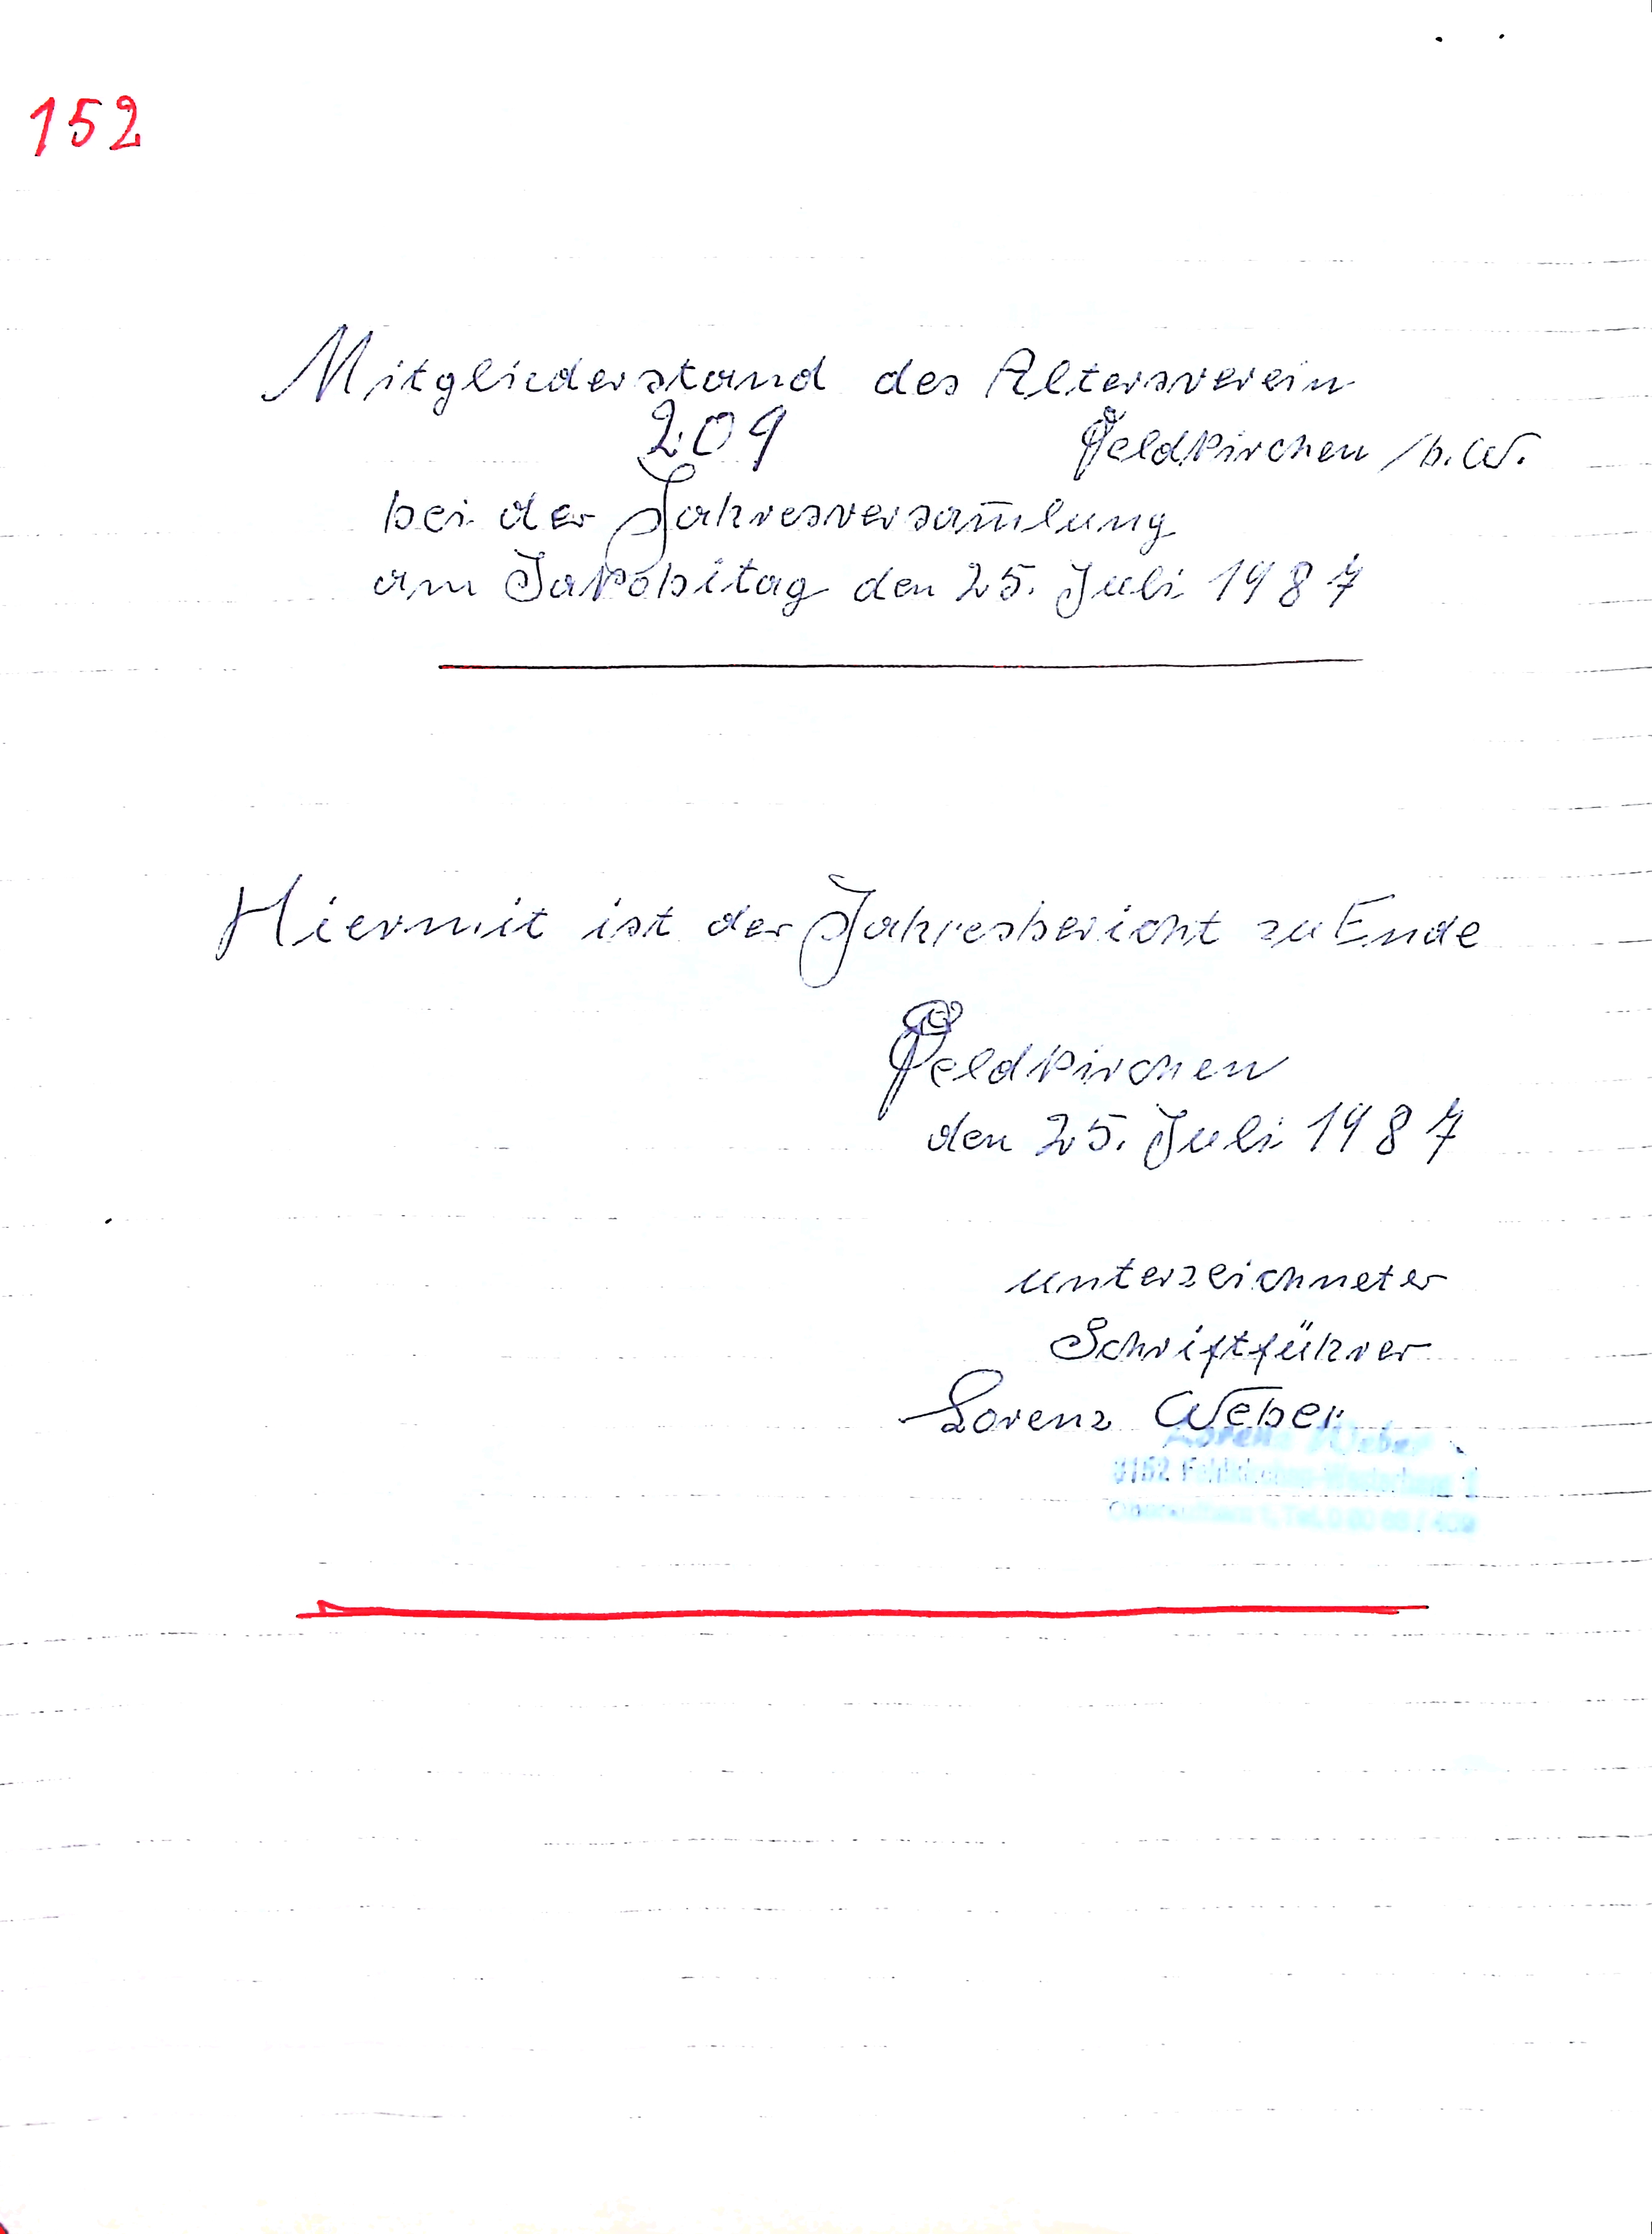 152
Mitgliederstand des Altersverein
209 Feldkirchen /b.W.
bei der Jahresversam̄lung
am Jakobitag den 25. Juli 1987
Hiermit ist der Jahresbericht zu Ende
Feldkirchen
den 25. Juli 1987
unterzeichneter
Schriftführer
Lorenz Weber
Lorenz Weber